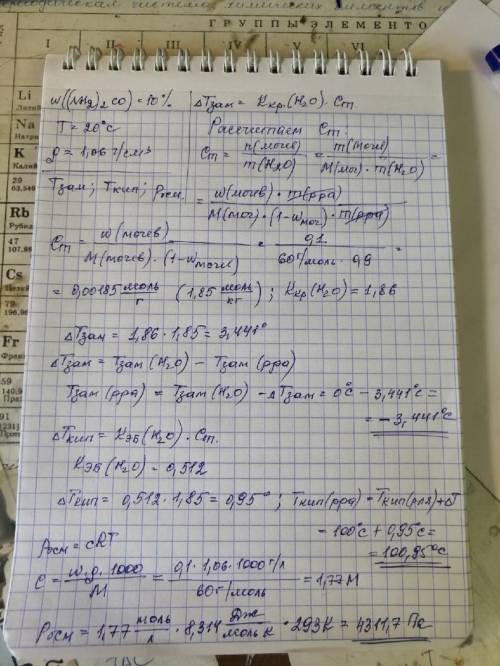 ГРУППЫ ЭЛЕМЕНТО
I II III IV V VI
Li
Na
K
29
63,549
Rb
47
107,86
Cs
79
196,9
Fr
ω((NH2)2CO) = 10% | ΔTзам = Kкр.(H2O) · Cm
T = 20°C
Рассчитаем Cm:
ρ = 1,06 г/см3
Cm = n(мочев) / m(H2O) = m(мочев) / M(моч) · m(H2O) =
Tзам; Tкип; Pосм.
= ω(мочев) · m(рра) / M(моч) · (1-ωмоч) · m(рра)
Cm = ω(мочев) / M(мочев) · (1-ωмочев) = 0,1 / 60 г/моль · 0,9 =
= 0,00185 моль/г (1,85 моль/кг); Kкр(H2O) = 1,86
ΔTзам = 1,86 · 1,85 = 3,441°
ΔTзам = Tзам(H2O) - Tзам(рра)
Tзам(рра) = Tзам(H2O) - ΔTзам = 0°C - 3,441°C =
= -3,441°C
ΔTкип = Kэб(H2O) · Cm.
Kэб(H2O) = 0,512
ΔTкип = 0,512 · 1,85 = 0,95°; Tкип(рра) = Tкип(рля) + ΔT
= 100°C + 0,95°C =
= 100,95°C
Pосм = cRT
C = ω·ρ·1000 / M = 0,1 · 1,06 · 1000 г/л / 60 г/моль = 1,77 M
Pосм = 1,77 моль/л · 8,314 Дж/моль К · 293K = 4311,7 Па